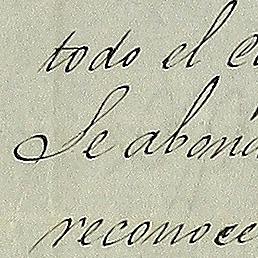 todo el
Se abon
reconoce